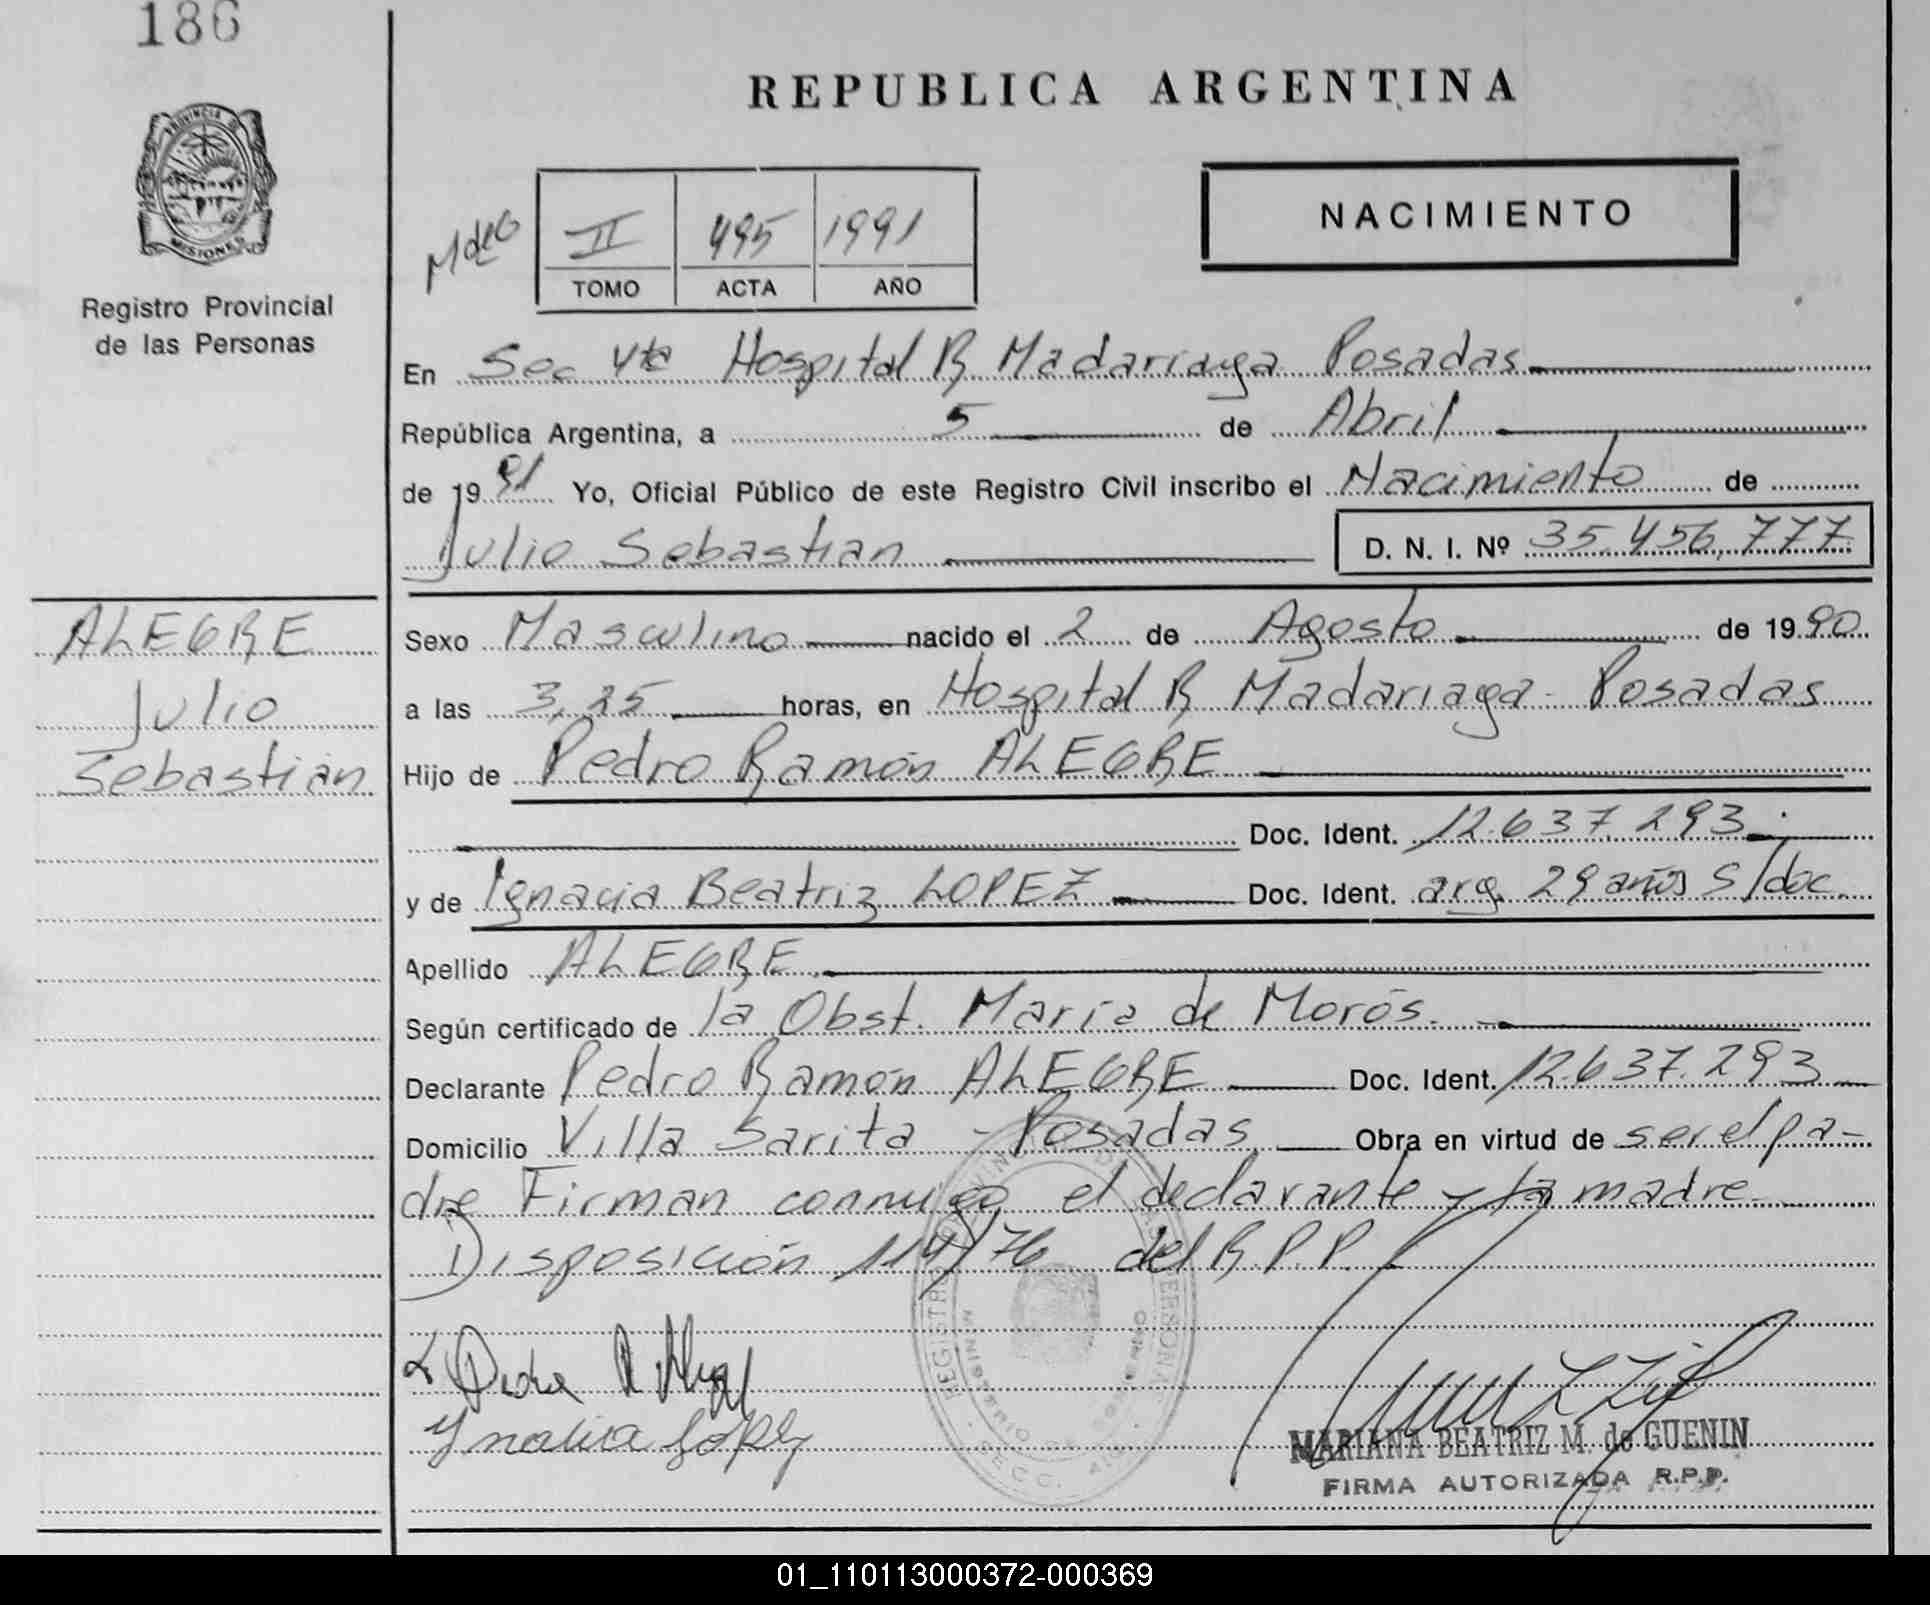 186
PROVINCIA DE
MISIONES
Registro Provincial
de las Personas
REPUBLICA ARGENTINA
II 495 1991
TOMO ACTA AÑO
NACIMIENTO
En Sec 4ta Hospital R Madariaga Posadas
República Argentina, a 5 de Abril
de 1991 Yo, Oficial Público de este Registro Civil inscribo el Nacimiento de
Julio Sebastian D. N. I. Nº 35.456.777
ALEGRE
Julio
Sebastián
Sexo Masculino nacido el 2 de Agosto de 1990
a las 3,35 horas, en Hospital R Madariaga - Posadas
Hijo de Pedro Ramón ALEGRE
Doc. Ident. 12.637.293
y de Ignacia Beatriz LOPEZ Doc. Ident. arg. 29 años S/doc.
Apellido ALEGRE
Según certificado de la Obst. María de Morós.
Declarante Pedro Ramón ALEGRE Doc. Ident. 12.637.293
Domicilio Villa Sarita - Posadas Obra en virtud de ser el pa-
dre Firman conmigo el declarante y la madre
Disposición 114/76 del R.P.P.
MARIANA BEATRIZ M. de GUENIN
FIRMA AUTORIZADA R.P.P.
01_110113000372-000369